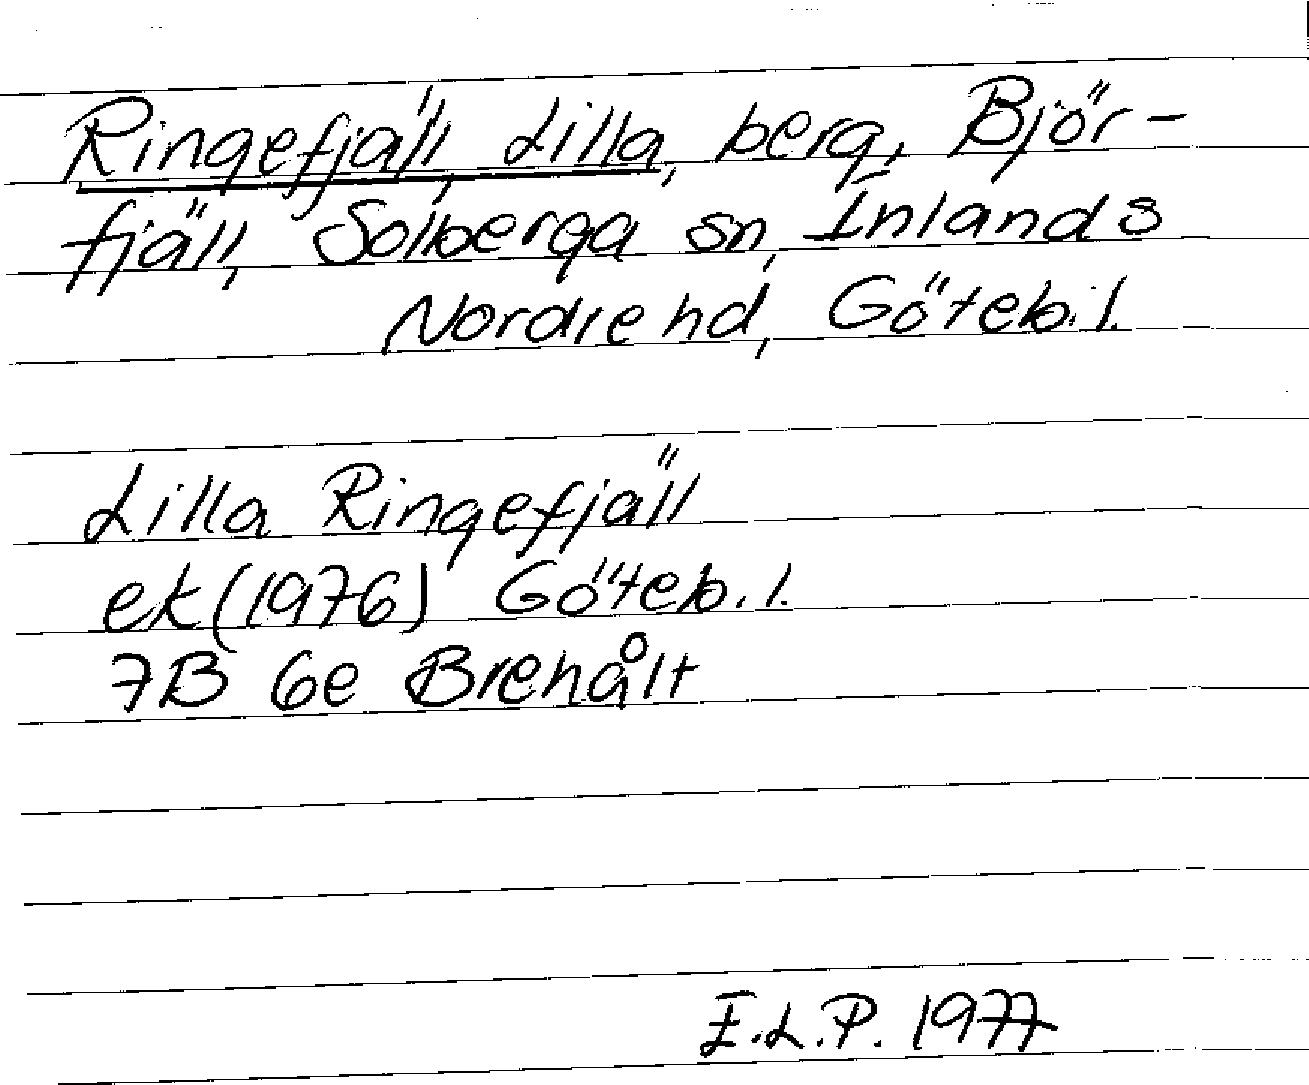 Ringefjäll, Lilla, berg, Björ-
fjäll, Solberga sn, Inlands
Nordre hd, Göteb.l.
Lilla Ringefjäll
ek(1976) Göteb.l.
7B 6e Brehålt
I.L.P. 1977